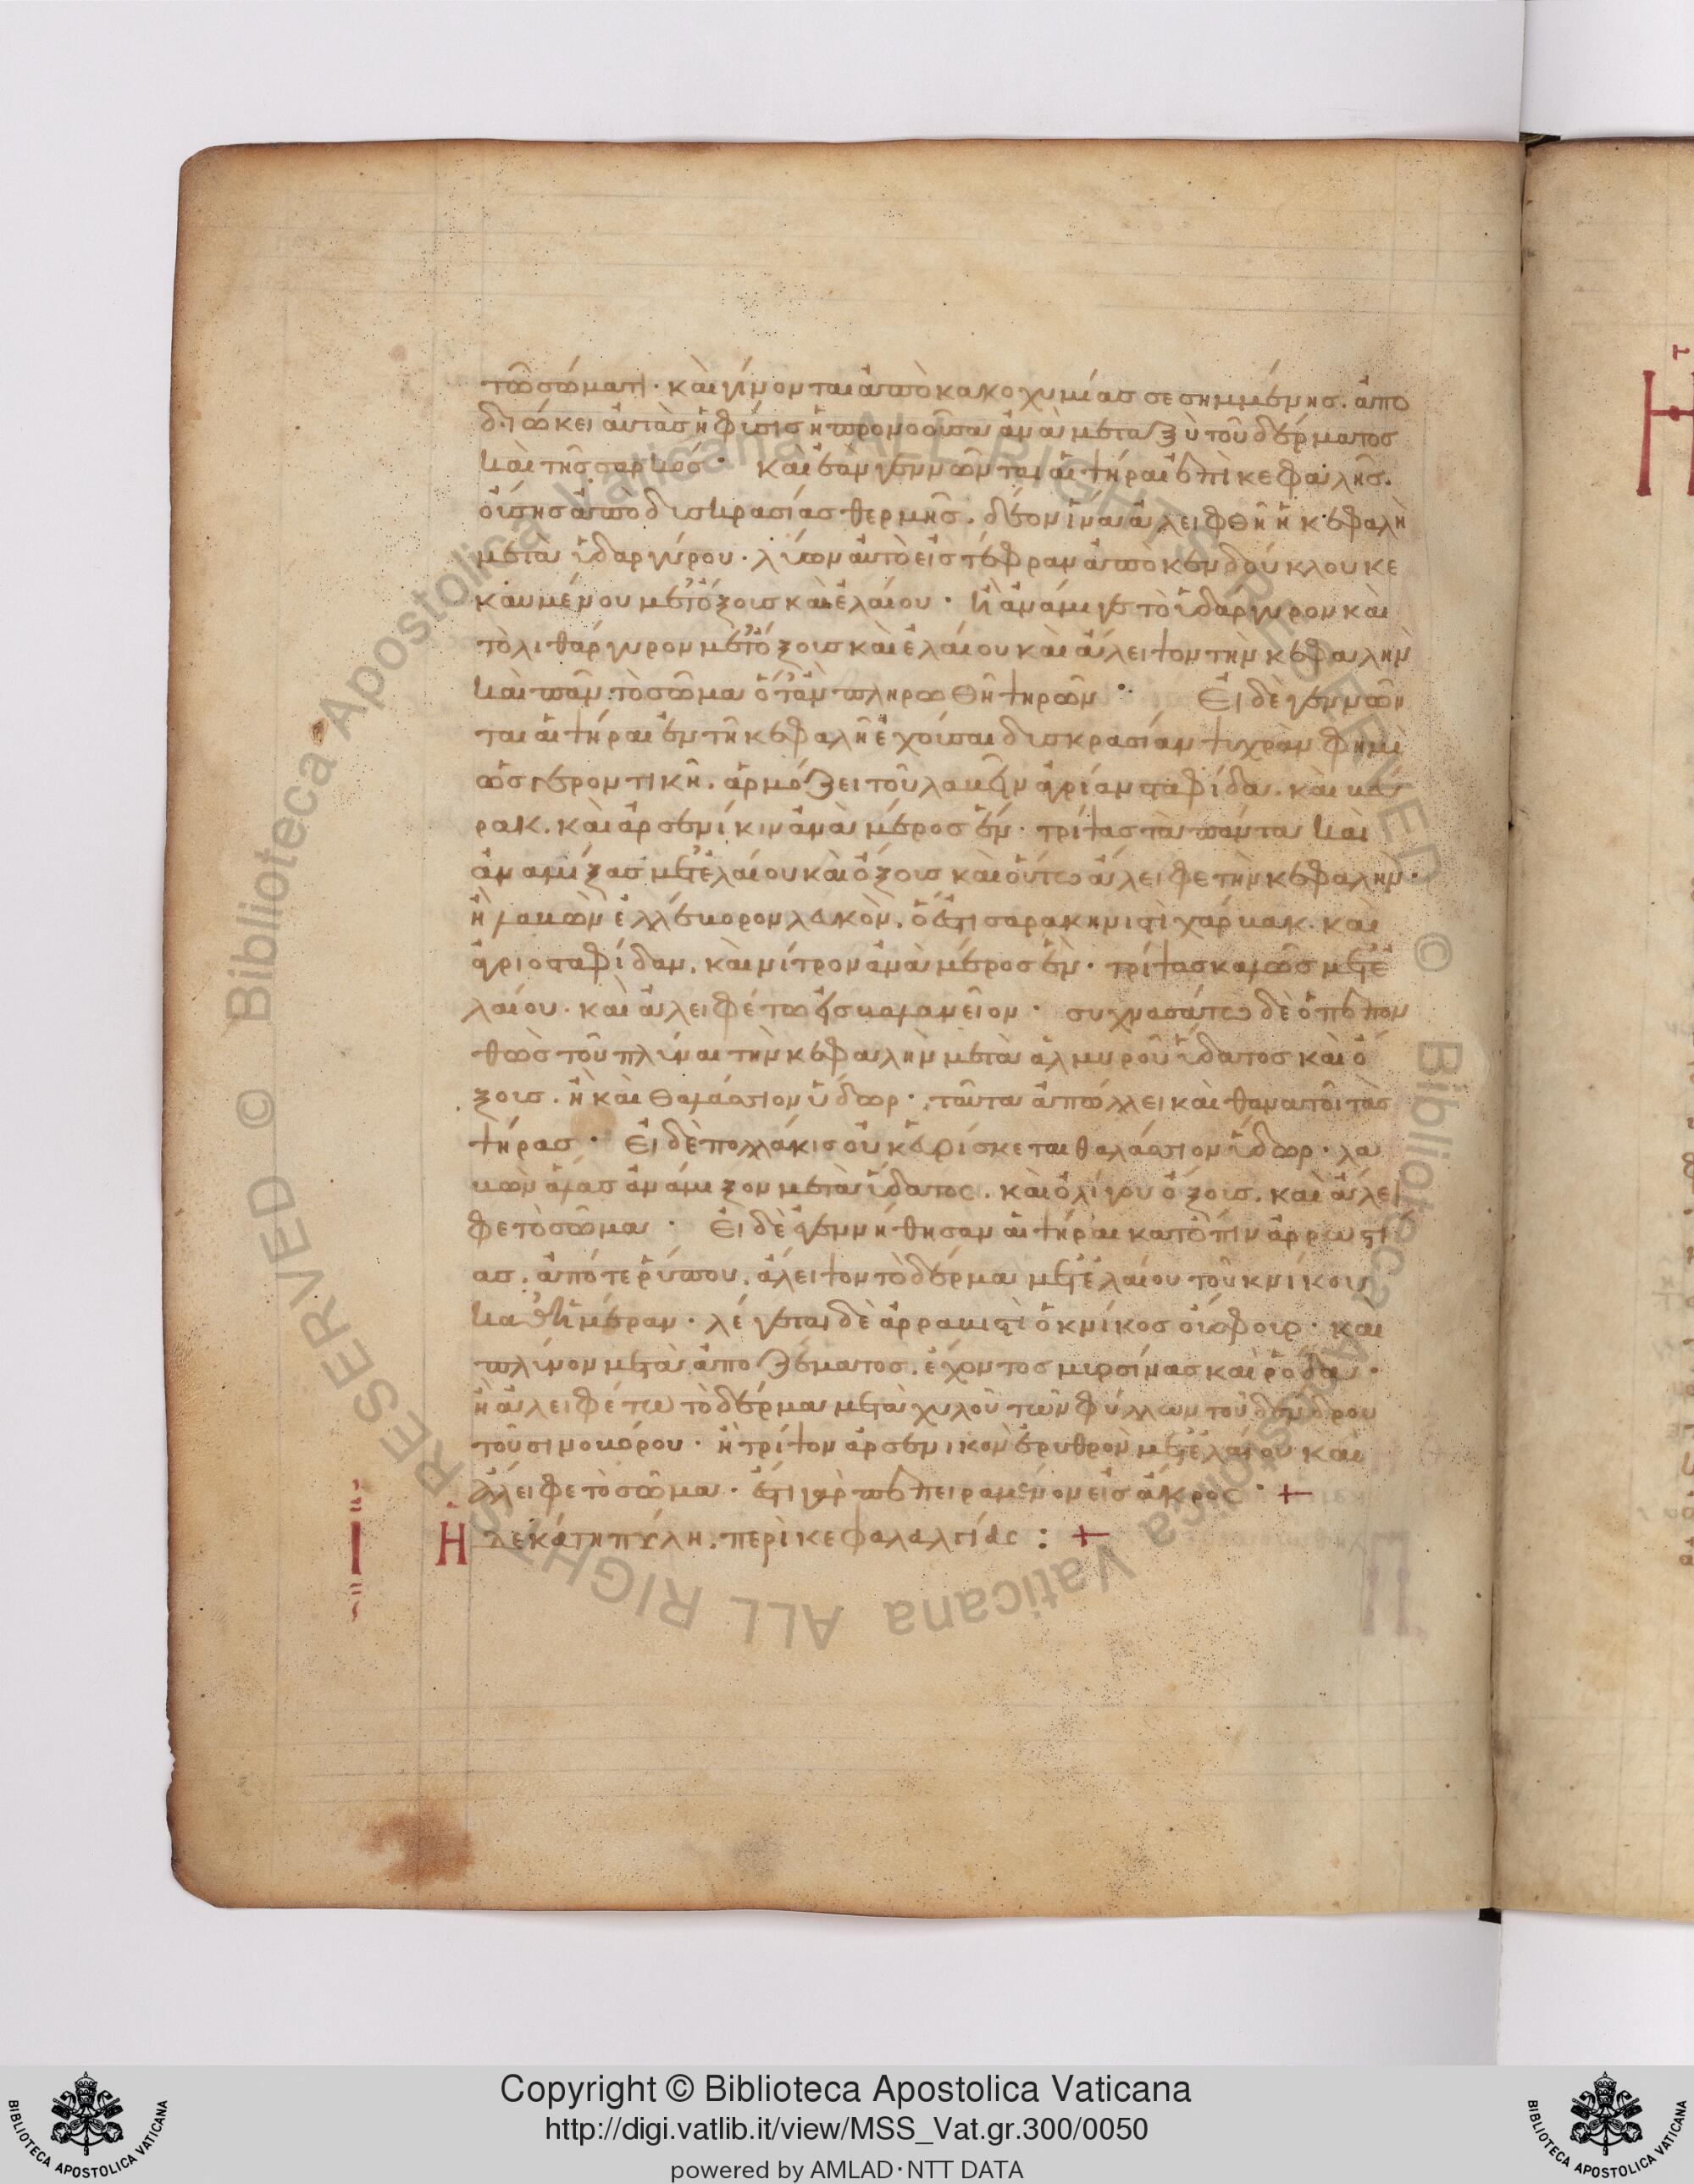 τῶ σώματι· καὶ γίνονται ἀπὸ κακοχυμίασ σεσημμένησ. ἀπο
διώκει αὐτὰσ ἡ φύσισ ἡ προνοοῦσα ἀνὰ μεταξὺ τοῦ δέρματοσ
καὶ τῆσ σαρκόσ· καὶ ἐὰν γεννῶνται αἱ ψήραι ἐπὶ κεφαλῆσ.
οὔσησ ἀπὸ δυσκρασίασ θερμῆσ. δέον ἵνα ἀλειφθῆ ἡ κεφαλὴ
μετὰ ὑδαργύρου· λύων αὐτὸ εἰσ τέφραν ἀπὸ κενδούκλου κε
καυμένου μετ' ὄξουσ καὶ ἐλαίου· ἢ ἀνάμιγε τὸ ὑδαργυρον καὶ
τὸ λιθάργυρον μετ' ὄξουσ καὶ ἐλαίου καὶ ἄλειψον τὴν κεφαλὴν
καὶ πᾶν τὸ σῶμα ὅταν πληρωθῆ ψηρῶν· Εἰ δὲ γεννῶν
ται αἱ ψήραι ἐν τῆ κεφαλῆ ἐχούσαι δυσκρασίαν ψυχρὰν φημὶ
ὡσ γεροντικῆ. ἁρμόζει τοῦ λαβεῖν ἀγρίαν σταφίδα. καὶ
ρακ. καὶ ἀρσενίκιν ἀνὰ μέροσ ἕν· τρίψασ τὰ πάντα καὶ
ἀναμίξασ μετ' ἐλαίου καὶ ὄξουσ καὶ οὕτω ἄλειφε τὴν κεφαλήν·
ἢ λαβὼν ἐλλέβορον λευκὸν. ὅ ἐστι σαρακηνιστὶ χάρβακ. καὶ
ἀγριοσταφίδαν. καὶ νίτρον ἀνὰ μέροσ ἓν· τρίψασ καλῶσ μετ' ἐ
λαίου· καὶ ἀλειφέτω ἐσ βαλανεῖον· συχνασάτω δὲ ὁ πεπον
θὼσ τοῦ πλύναι τὴν κεφαλὴν μετὰ ἁλμυροῦ ὕδατοσ καὶ ὄ
ξουσ. ἢ καὶ θαλάσσιον ὕδωρ· ταῦτα ἀπόλλει καὶ θανατοῖ τὰσ
ψήρασ· Εἰ δὲ πολλάκισ οὐκ εὑρίσκεται θαλάσσιον ὕδωρ· λα
βὼν ἅλασ ἀνάμιξον μετὰ ὕδατοσ. καὶ ὀλίγου ὄξουσ. καὶ ἄλει
φε τὸ σῶμα· Εἰ δὲ ἐγεννήθησαν αἱ ψήραι κατόπιν ἀρρωστί
ασ. ἀπό τε ῥύπου. ἄλειψον τὸ δέρμα μετ' ἐλαίου τοῦ κνίκου
καθ' ἡμέραν· λέγεται δὲ ἀρραβιστὶ ὁ κνίκοσ οὐσφουρ· καὶ
πλῦνον μετὰ ἀποζέματοσ. ἔχοντοσ μυρσίνασ καὶ ρόδα·
ἢ ἀλειφέτω τὸ δέρμα μετὰ χυλοῦ τῶν φύλλων τοῦ δένδρου
τοῦ σινοκόρου· ἢ τρίψον ἀρσενικὸν ἐρυθρὸν μετ' ἐλαίου καὶ
ἄλειφε τὸ σῶμα· ἔστι γὰρ πεπειραμένον εἰσ ἄκροσ· +
Ι Η δεκάτη πύλη. περὶ κεφαλαλγίας : +
Copyright © Biblioteca Apostolica Vaticana
http://digi.vatlib.it/view/MSS_Vat.gr.300/0050
powered by AMLAD·NTT DATA
BIBLIOTECA APOSTOLICA VATICANA
BIBLIOTECA APOSTOLICA VATICANA
© Biblioteca Apostolica Vaticana ALL RIGHTS RESERVED
© Biblioteca Apostolica Vaticana ALL RIGHTS RESERVED